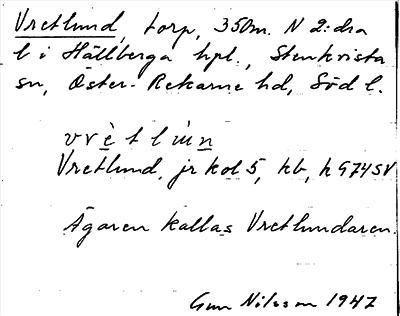 Vretlund, torp, 350m. N 2:dra
l i Hällberga hpl., Stenkvista
sn, Öster-Rekarne hd, Söd l.
vrètlún
Vretlund, jr kol 5, kb, h G74SV
Ägaren kallas Vretlundaren.
Gun Nilsson 1947